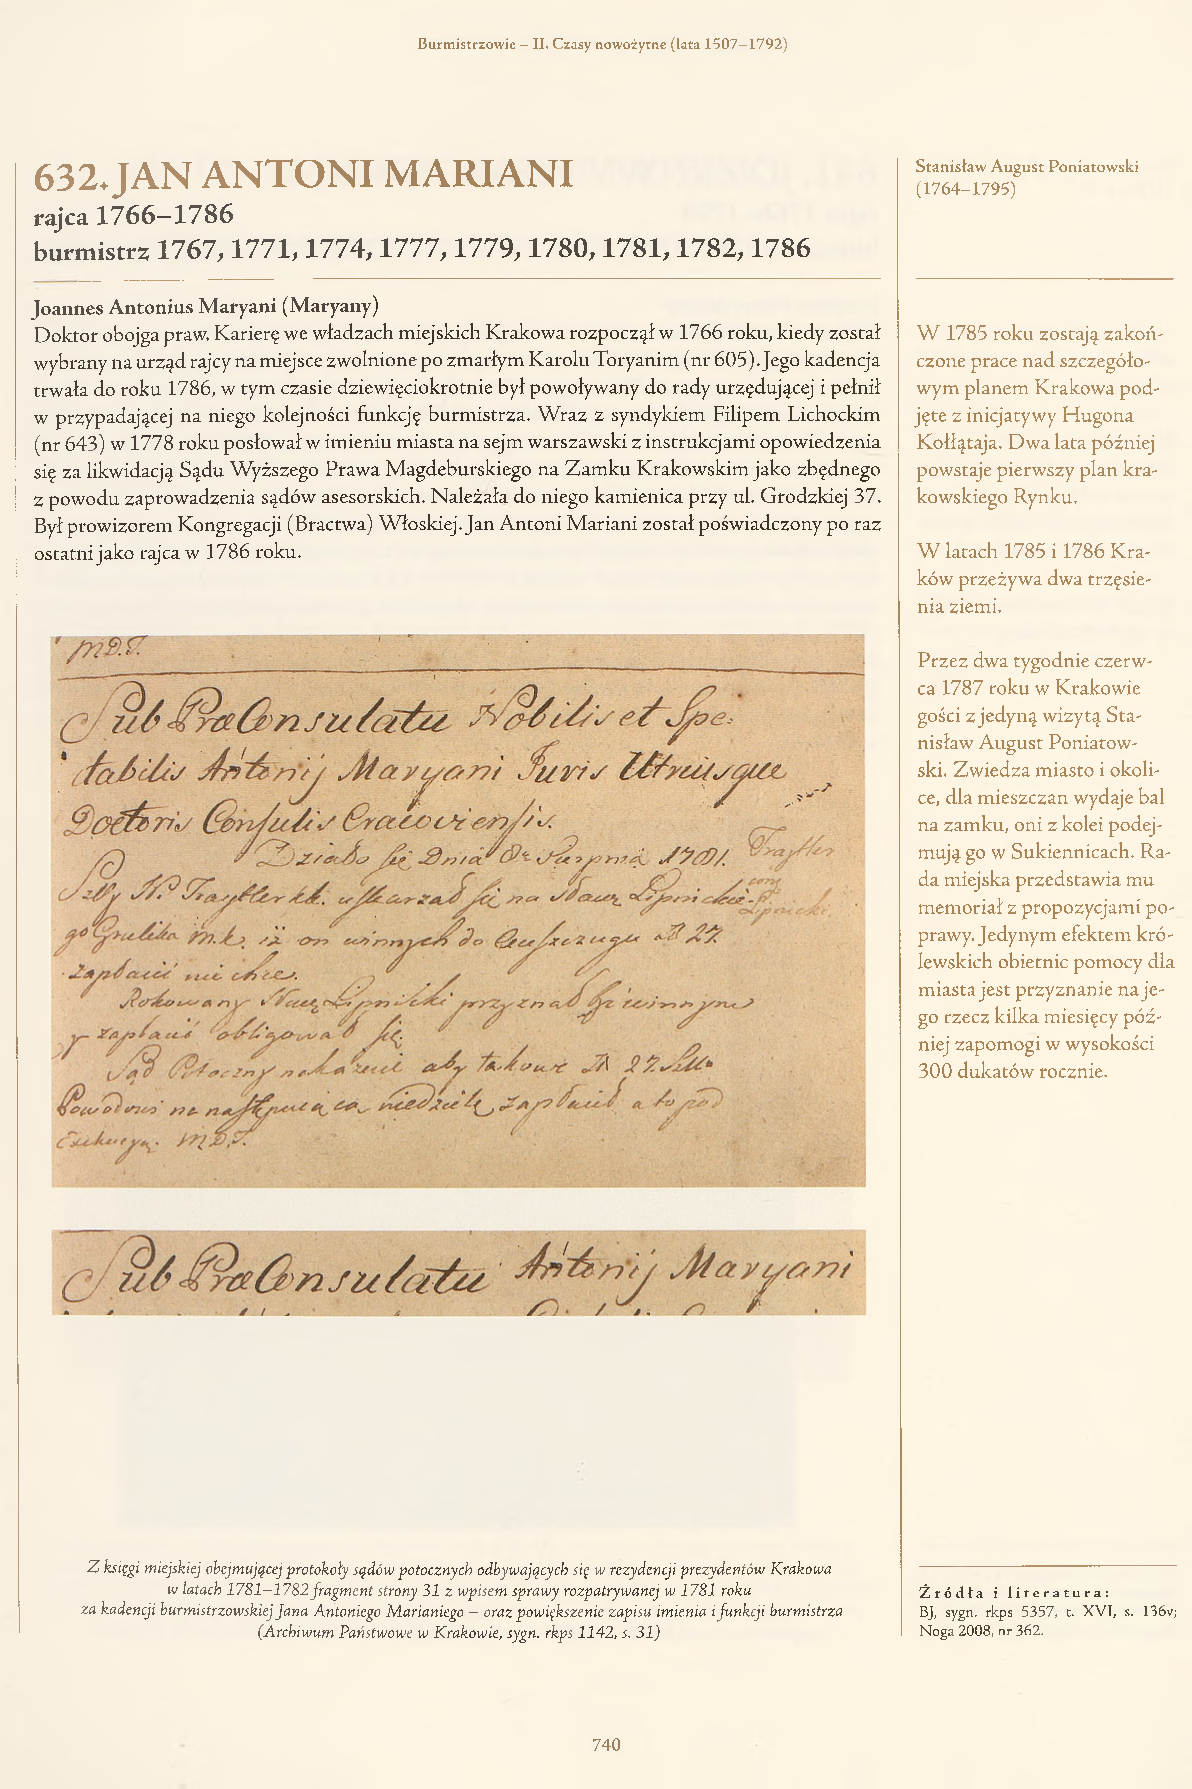 Burmistrzowie – II. Czasy nowożytne (lata 1507–1792)
632. JAN ANTONI MARIANI
rajca 1766–1786
burmistrz 1767, 1771, 1774, 1777, 1779, 1780, 1781, 1782, 1786
Joannes Antonius Maryani (Maryany)
Doktor obojga praw. Karierę we władzach miejskich Krakowa rozpoczął w 1766 roku, kiedy został
wybrany na urząd rajcy na miejsce zwolnione po zmarłym Karolu Toryanim (nr 605). Jego kadencja
trwała do roku 1786, w tym czasie dziewięciokrotnie był powoływany do rady urzędującej i pełnił
w przypadającej na niego kolejności funkcję burmistrza. Wraz z syndykiem Filipem Lichockim
(nr 643) w 1778 roku posłował w imieniu miasta na sejm warszawski z instrukcjami opowiedzenia
się za likwidacją Sądu Wyższego Prawa Magdeburskiego na Zamku Krakowskim jako zbędnego
z powodu zaprowadzenia sądów asesorskich. Należała do niego kamienica przy ul. Grodzkiej 37.
Był prowizorem Kongregacji (Bractwa) Włoskiej. Jan Antoni Mariani został poświadczony po raz
ostatni jako rajca w 1786 roku.
M.D.T.
Sub PræConsulatu Nobilis et Spe-
ctabilis Antonij Maryani Juris Utriusque
Doctoris Consulis Cracoviensis.
Działo się Dnia 8 Sierpnia 1781.
uskarzał się na
go m.k. iż on winnych do 27.
zapłacić nie chce.
Rokowany Lipnicki przyznał się winnym
y zapłacić obligował się.
Sąd Potoczny nakazuie aby takowe 27.
Powodowi na następuiącą niedzielę zapłacił, a to pod
Exekucyą. M.D.T.
Sub PræConsulatu Antonij Maryani
Z księgi miejskiej obejmującej protokoły sądów potocznych odbywających się w rezydencji prezydentów Krakowa
w latach 1781–1782 fragment strony 31 z wpisem sprawy rozpatrywanej w 1781 roku
za kadencji burmistrzowskiej Jana Antoniego Marianiego – oraz powiększenie zapisu imienia i funkcji burmistrza
(Archiwum Państwowe w Krakowie, sygn. rkps 1142, s. 31)
Stanisław August Poniatowski
(1764–1795)
W 1785 roku zostają zakoń-
czone prace nad szczegóło-
wym planem Krakowa pod-
jęte z inicjatywy Hugona
Kołłątaja. Dwa lata później
powstaje pierwszy plan kra-
kowskiego Rynku.
W latach 1785 i 1786 Kra-
ków przeżywa dwa trzęsie-
nia ziemi.
Przez dwa tygodnie czerw-
ca 1787 roku w Krakowie
gości z jedyną wizytą Sta-
nisław August Poniatow-
ski. Zwiedza miasto i okoli-
ce, dla mieszczan wydaje bal
na zamku, oni z kolei podej-
mują go w Sukiennicach. Ra-
da miejska przedstawia mu
memoriał z propozycjami po-
prawy. Jedynym efektem kró-
lewskich obietnic pomocy dla
miasta jest przyznanie na je-
go rzecz kilka miesięcy póź-
niej zapomogi w wysokości
300 dukatów rocznie.
Źródła i literatura:
BJ, sygn. rkps 5357, t. XVI, s. 136v;
Noga 2008, nr 362.
740